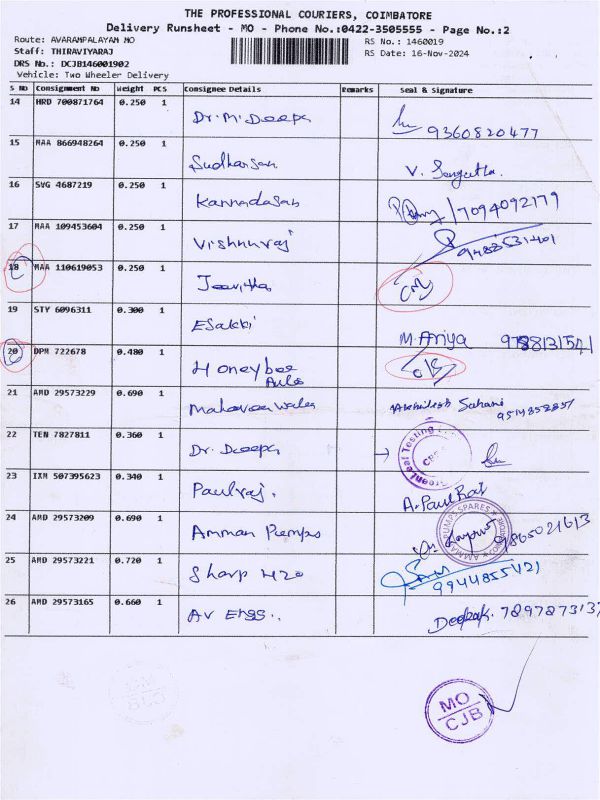 THE PROFESSIONAL COURIERS, COIMBATORE
Delivery Runsheet - MO - Phone No.:0422-3505555 - Page No.:2
Route: AVARAMPALAYAM MO RS No.: 1460019
Staff: THIRAVIYARAJ RS Date: 16-Nov-2024
DRS No.: DCJB146001902
Vehicle: Two Wheeler Delivery
S No Consignment No Weight PCS Consignee Details Remarks Seal & Signature
14 HRD 700871764 0.250 1 Dr. M. Deepa 9360820477
15 MAA 866948264 0.250 1 Sudharsan V. Sangutha.
16 SVG 4687219 0.250 1 Kannadasan 7094092179
17 MAA 109453604 0.250 1 Vishnuraj
18 MAA 110619053 0.250 1 Jeevitha
19 STY 6096311 0.300 1 ESakki M. Ariya
20 DPM 722678 0.480 1 Honeybee
21 AMD 29573229 0.690 1 Akhilesh Sahani
22 TEN 7827811 0.360 1 Dr. Deepa
23 IXM 507395623 0.340 1 Paulraj. A. Paul Raj
24 AMD 29573209 0.690 1 Amman Pumps 9865021613
AMMAN PUMPS SPARES
25 AMD 29573221 0.720 1 Sharp H2O
26 AMD 29573165 0.660 1 AV Engs.. Deepak.
MO
CJB